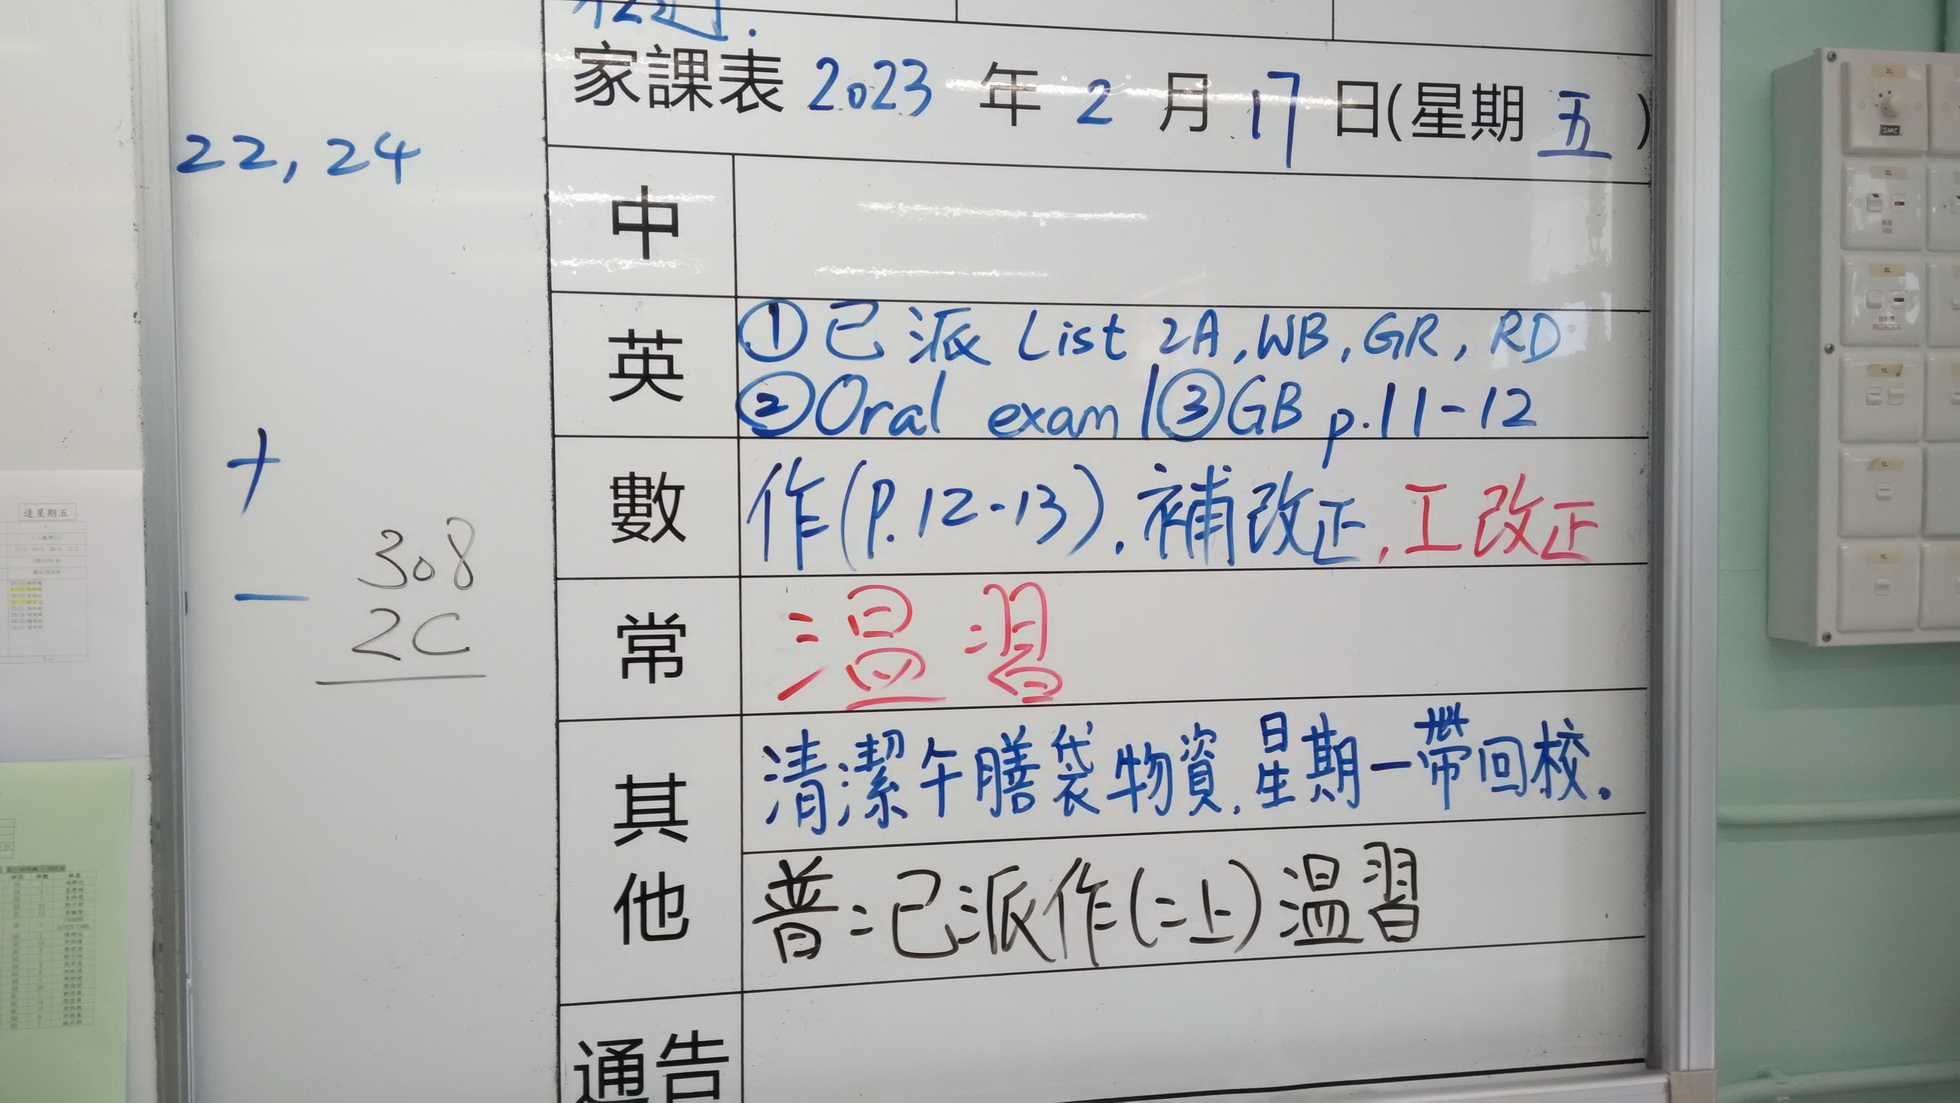 家課表 2023 年 2 月 17 日(星期 五 )
22, 24
中
英
①已派 List 2A, WB, GR, RD
②Oral exam |③GB p.11-12
數
作(P.12-13), 補改正, 工改正
+
-
308
2C
常
溫習
其他
清潔午膳袋物資, 星期一帶回校。
普:已派作(二上)溫習
通告
逢星期五